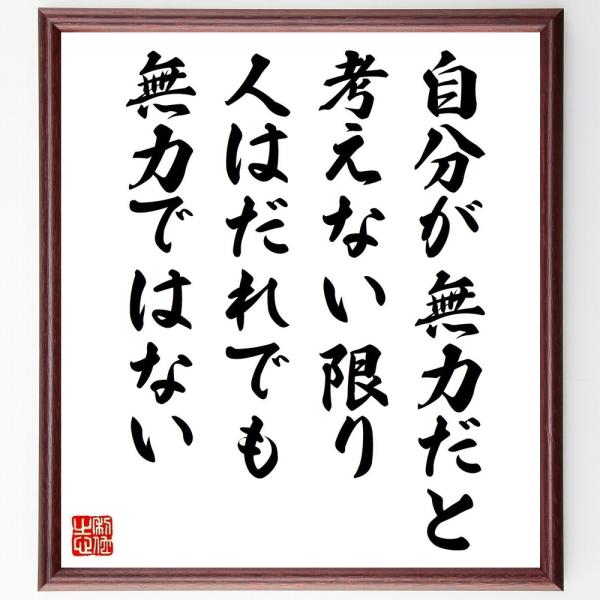 自分が無力だと
考えない限り
人はだれでも
無力ではない